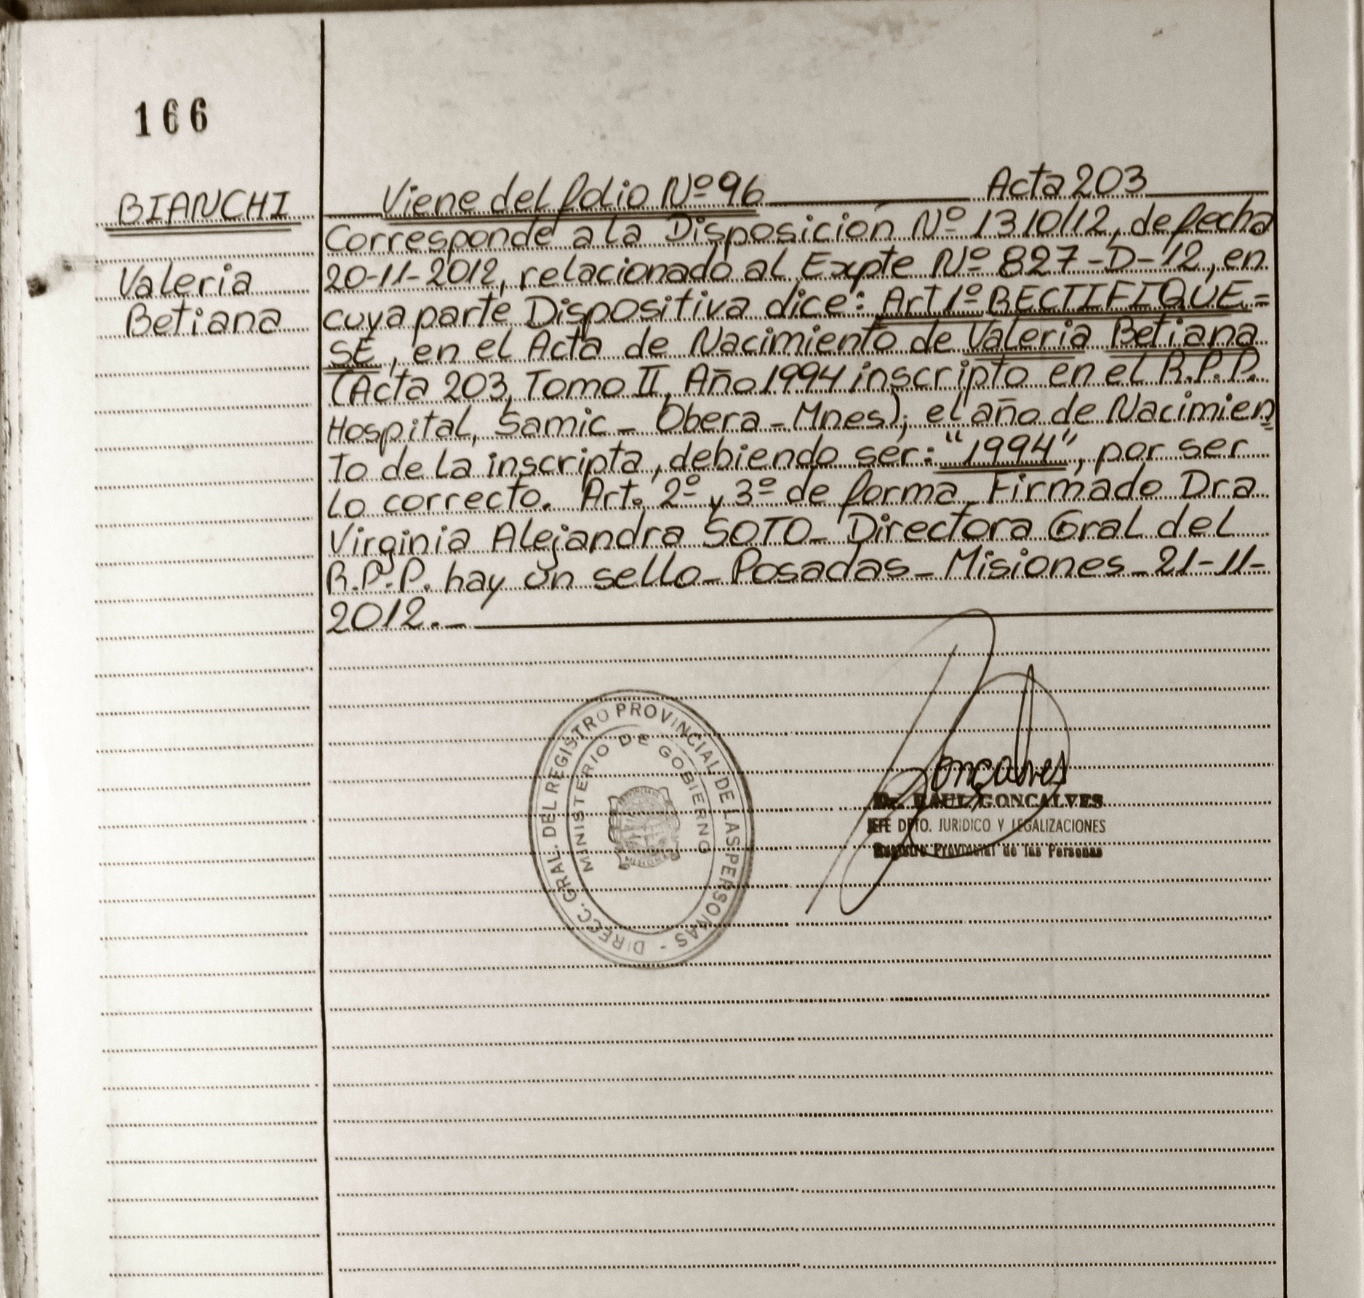 166
BIANCHI
Valeria
Betiana
Viene del folio Nº 96 Acta 203
Corresponde a la Disposición Nº 1310/12, de fecha
20-11-2012, relacionado al Expte Nº 827-D-12, en
cuya parte Dispositiva dice: Art 1º RECTIFIQUE=
SE, en el Acta de Nacimiento de Valeria Betiana
(Acta 203, Tomo II, Año 1994 inscripto en el R.P.P.
Hospital, Samic - Obera - Mnes); el año de Nacimien=
to de la inscripta, debiendo ser: "1994", por ser
lo correcto. Art. 2º y 3º de forma. Firmado Dra
Virginia Alejandra SOTO - Directora Gral del
R.P.P. hay un sello - Posadas - Misiones - 21-11-
2012. -
DIRECC. GRAL. DEL REGISTRO PROVINCIAL DE LAS PERSONAS -
MINISTERIO DE GOBIERNO
Goncalves
Dr. RAUL GONCALVES
JEFE DPTO. JURIDICO Y LEGALIZACIONES
Registro Provincial de las Personas